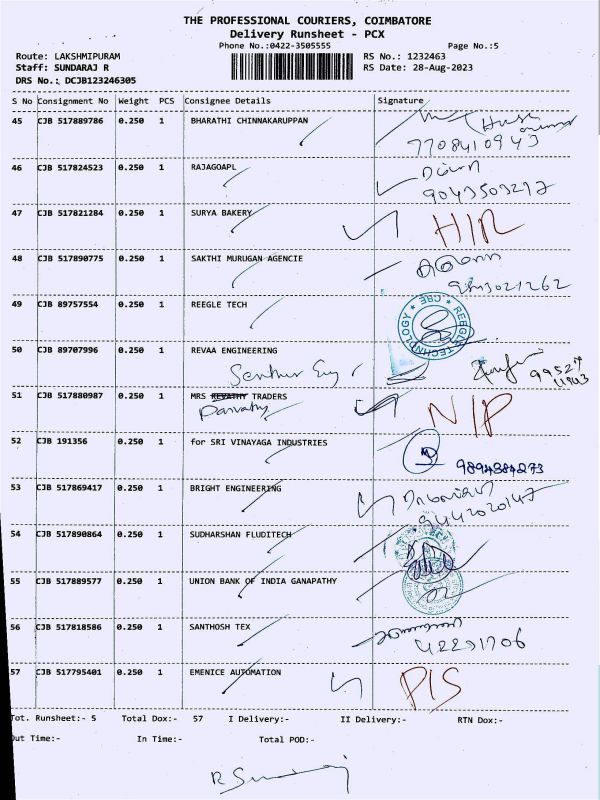 THE PROFESSIONAL COURIERS, COIMBATORE
Delivery Runsheet - PCX
Phone No.:0422-3505555
Page No.:5
Route: LAKSHMIPURAM
RS No.: 1232463
Staff: SUNDARAJ R
RS Date: 28-Aug-2023
DRS No.: DCJB123246305
S No Consignment No Weight PCS Consignee Details Signature
45 CJB 517889786 0.250 1 BHARATHI CHINNAKARUPPAN
7708410943
46 CJB 517824523 0.250 1 RAJAGOAPL
9043503217
47 CJB 517821284 0.250 1 SURYA BAKERY
48 CJB 517890775 0.250 1 SAKTHI MURUGAN AGENCIE
49 CJB 89757554 0.250 1 REEGLE TECH
REEGLE TECHNOLOGY * CBE *
50 CJB 89707996 0.250 1 REVAA ENGINEERING
51 CJB 517880987 0.250 1 MRS REVATHY TRADERS
Parvathy
N/P
52 CJB 191356 0.250 1 for SRI VINAYAGA INDUSTRIES
9894384273
53 CJB 517869417 0.250 1 BRIGHT ENGINEERING
9442020147
54 CJB 517890864 0.250 1 SUDHARSHAN FLUDITECH
55 CJB 517889577 0.250 1 UNION BANK OF INDIA GANAPATHY
56 CJB 517818586 0.250 1 SANTHOSH TEX
57 CJB 517795401 0.250 1 EMENICE AUTOMATION
Tot. Runsheet:- 5 Total Dox:- 57 I Delivery:- II Delivery:- RTN Dox:-
Out Time:- In Time:- Total POD:-